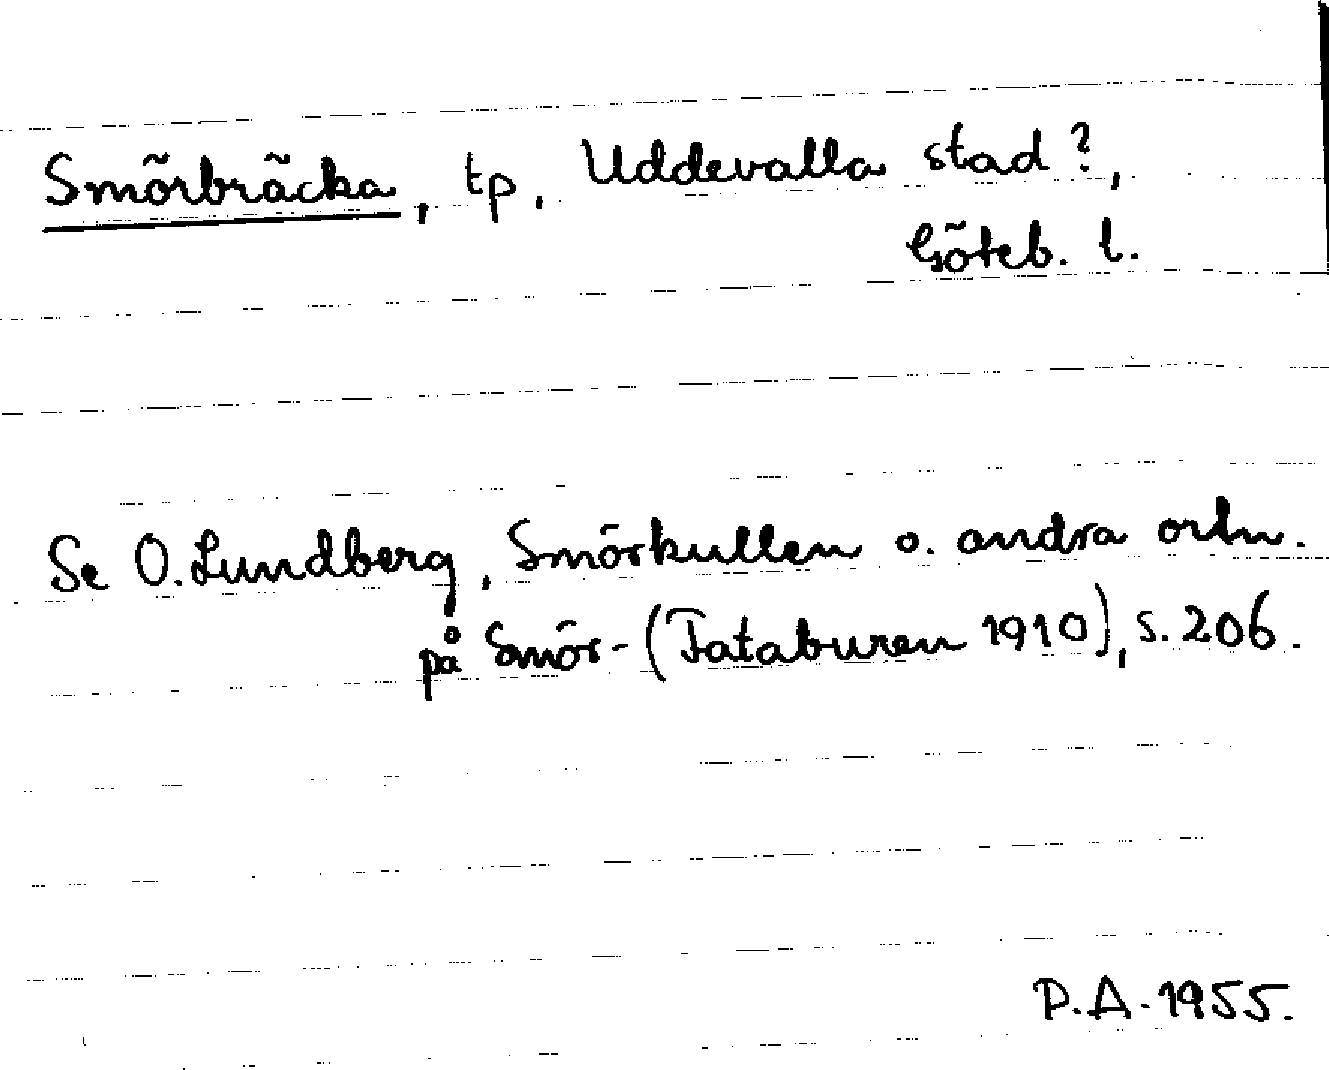 Smörbräcka, tp. Uddevalla stad?,
Göteb. l.
Se O. Lundberg, Smörkullen o. andra ortn.
på Smör- (Fataburen 1910), s. 206.
P.A. 1955.